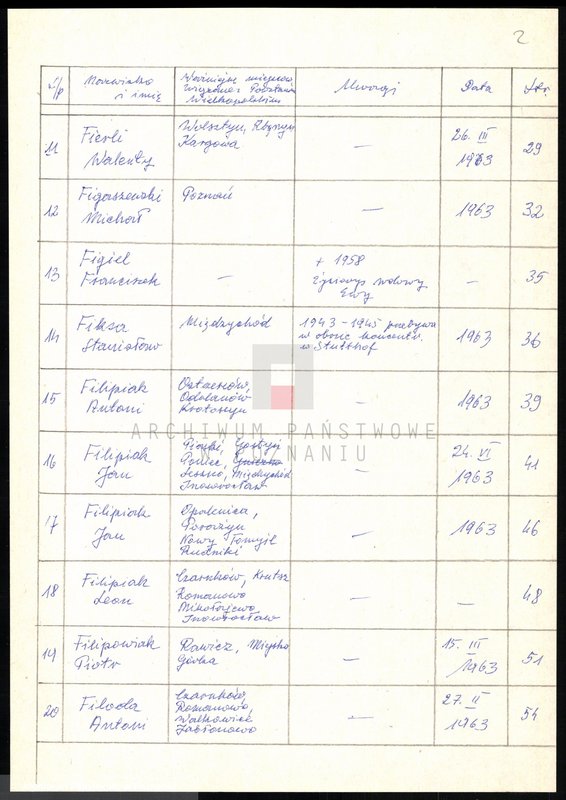 2
L/p Nazwisko i imię Ważniejsze miejscow. związane z Powstaniem Wielkopolskim Uwagi Data Str.
11 Fierli Walenty Wolsztyn, Zbąszyń Kargowa — 26. III 1963 29
12 Figaszewski Michał Poznań — 1963 32
13 Figiel Franciszek — + 1958 Życiorys wdowy Ewy — 35
14 Fiksa Stanisław Międzychód 1943-1945 przebywa w obozie koncentr. w Stutthof 1963 36
15 Filipiak Antoni Ostrzeszów, Odolanów Krotoszyn — 1963 39
16 Filipiak Jan Piaski, Gostyń Poniec Leszno, Międzychód Inowrocław — 24. VI 1963 41
17 Filipiak Jan Opalenica, Nowy Tomyśl Rudniki — 1963 46
18 Filipiak Leon Czarnków, Romanowo Mikołajewo Inowrocław — — 48
19 Filipowiak Piotr Rawicz, Miejska Górka — 15. III 1963 51
20 Filoda Antoni Czarnków, Romanowo, Walkowice Jabłonowo — 27. II 1963 54
ARCHIWUM PAŃSTWOWE
W POZNANIU